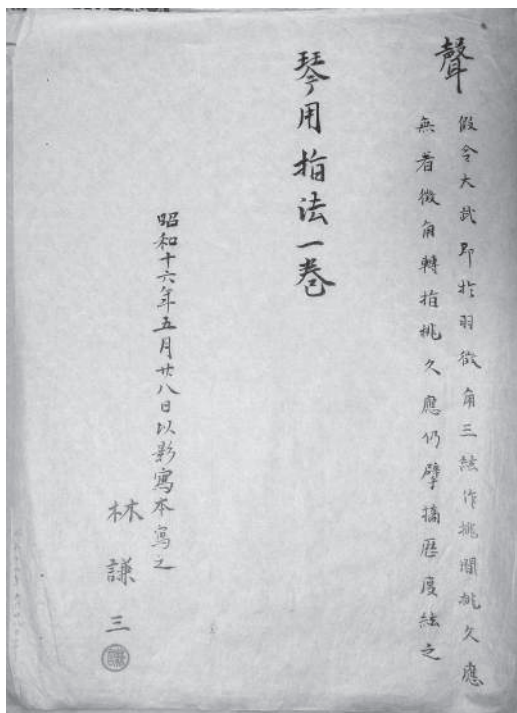 聲
假令大弐即於羽徵角三絃作挑間挑久應
無着徵角轉指挑久應仍擘擿歷度絃之
琴用指法一巻
昭和十六年五月廿八日以影寫本寫之
林謙三